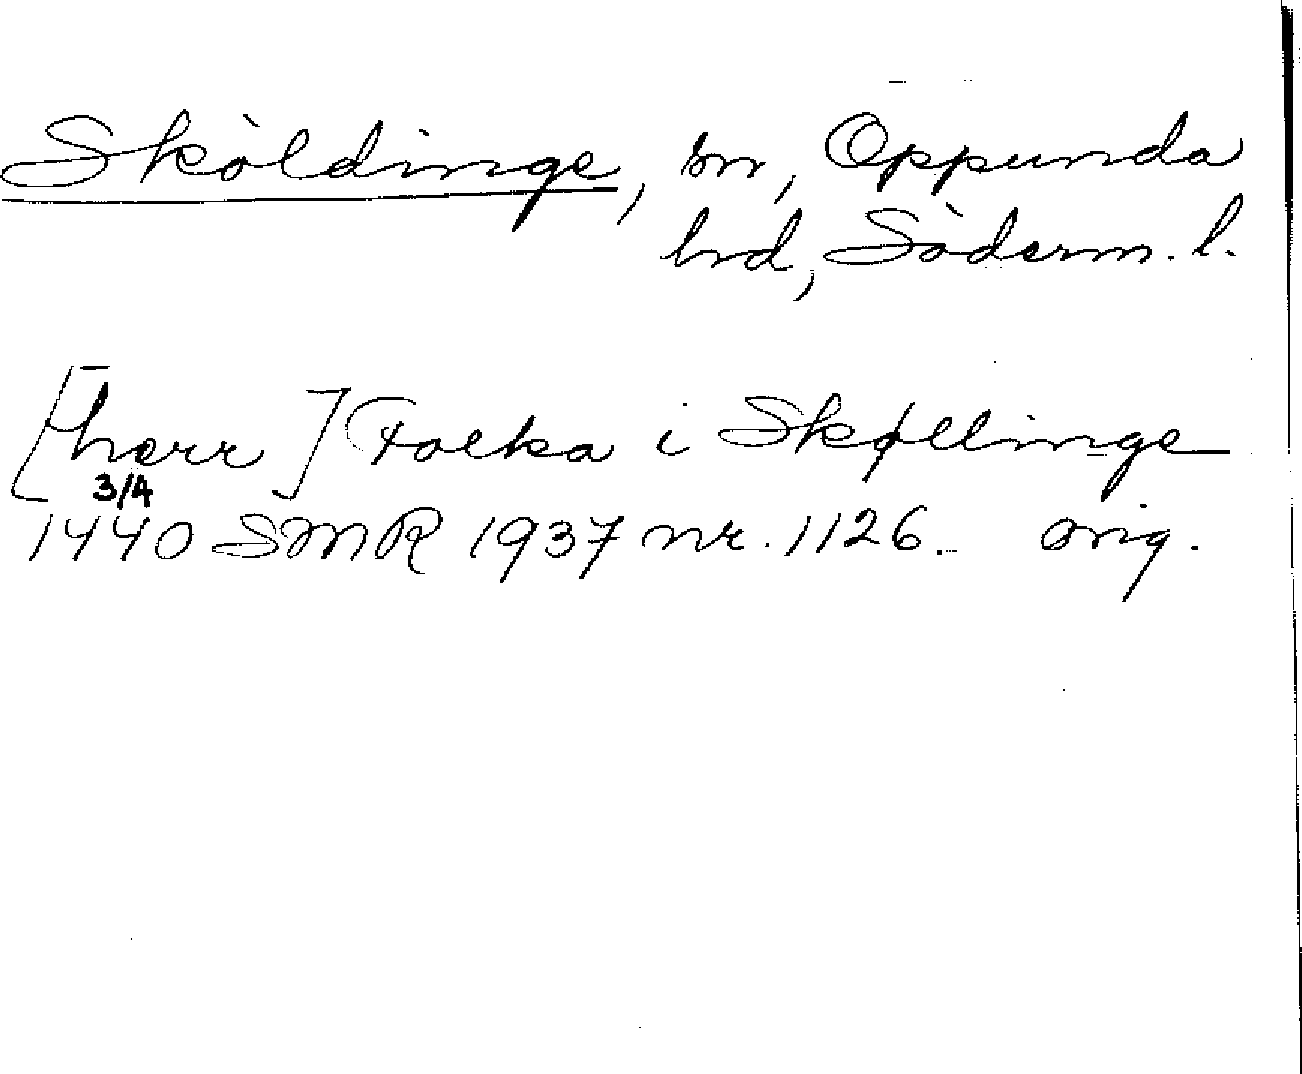 Sköldinge, sn, Oppunda
hrd, Söderm. l.
[herr] Folka i Skøllinge
3/4
1440 SMR 1937 nr. 1126. orig.